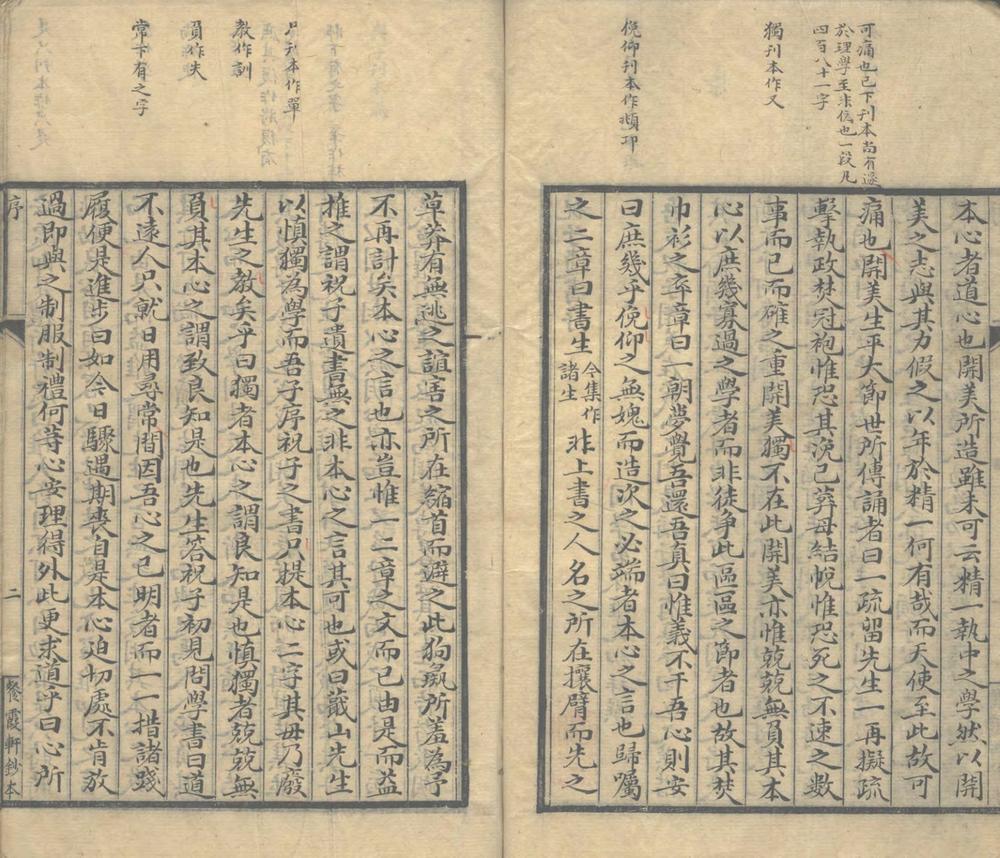 可痛也已下刊本尚有遂
於理學至未信也一段凡
四百八十一字
獨刊本作又
俛仰刊本作頫卬
本心者道心也開美所造雖未可云精一執中之學然以開
美之志與其力假之以年於精一何有哉而天使至此故可
痛也開美生平大節世所傳誦者曰一疏留先生一再擬疏
擊執政焚冠袍惟恐其浼已葬母結帨惟恐死之不速之數
事而已而確之重開美獨不在此開美亦惟兢兢無負其本
心以庶幾寡過之學者而非徒爭此區區之節者也故其焚
巾衫之卒章曰一朝夢覺吾還吾真曰惟義不干吾心則安
曰庶幾乎俛仰之無媿而造次之必端者本心之言也歸囑
之二章曰書生今集作諸生非上書之人名之所在攘臂而先之
只刊本作單
教作訓
負作失
常下有之字
草莽有無逃之誼害之所在縮首而避之此狗彘所羞為予
不再計矣本心之言也亦豈惟一二章之文而已由是而益
推之謂祝子遺書無之非本心之言其可也或曰蕺山先生
以慎獨為學而吾子序祝子之書只提本心二字其毋乃廢
先生之教矣乎曰獨者本心之謂良知是也慎獨者兢兢無
負其本心之謂致良知是也先生答祝子初見問學書曰道
不遠人只就日用尋常間因吾心之已明者而一一措諸踐
履便是進步曰如今日驟遇期喪自是本心迫切處不肯放
過即與之制服制禮何等心安理得外此更求道乎曰心所
序
二
餐霞軒鈔本